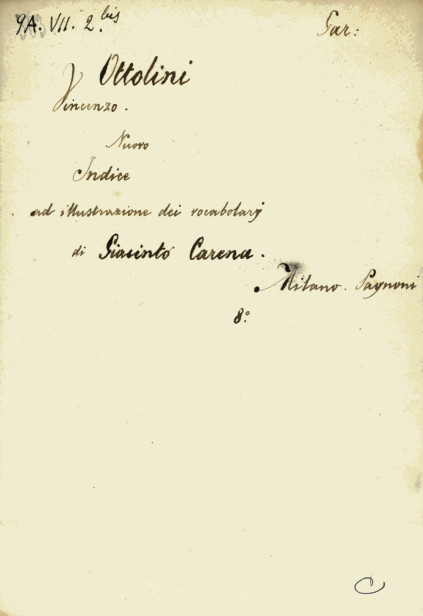 9A. VII. 2.bis
Gar:
Ottolini
Vincenzo.
Nuovo
Indice
ad illustrazione dei vocabolarj
di Giacinto Carena.
Milano. Pagnoni
8.°
C